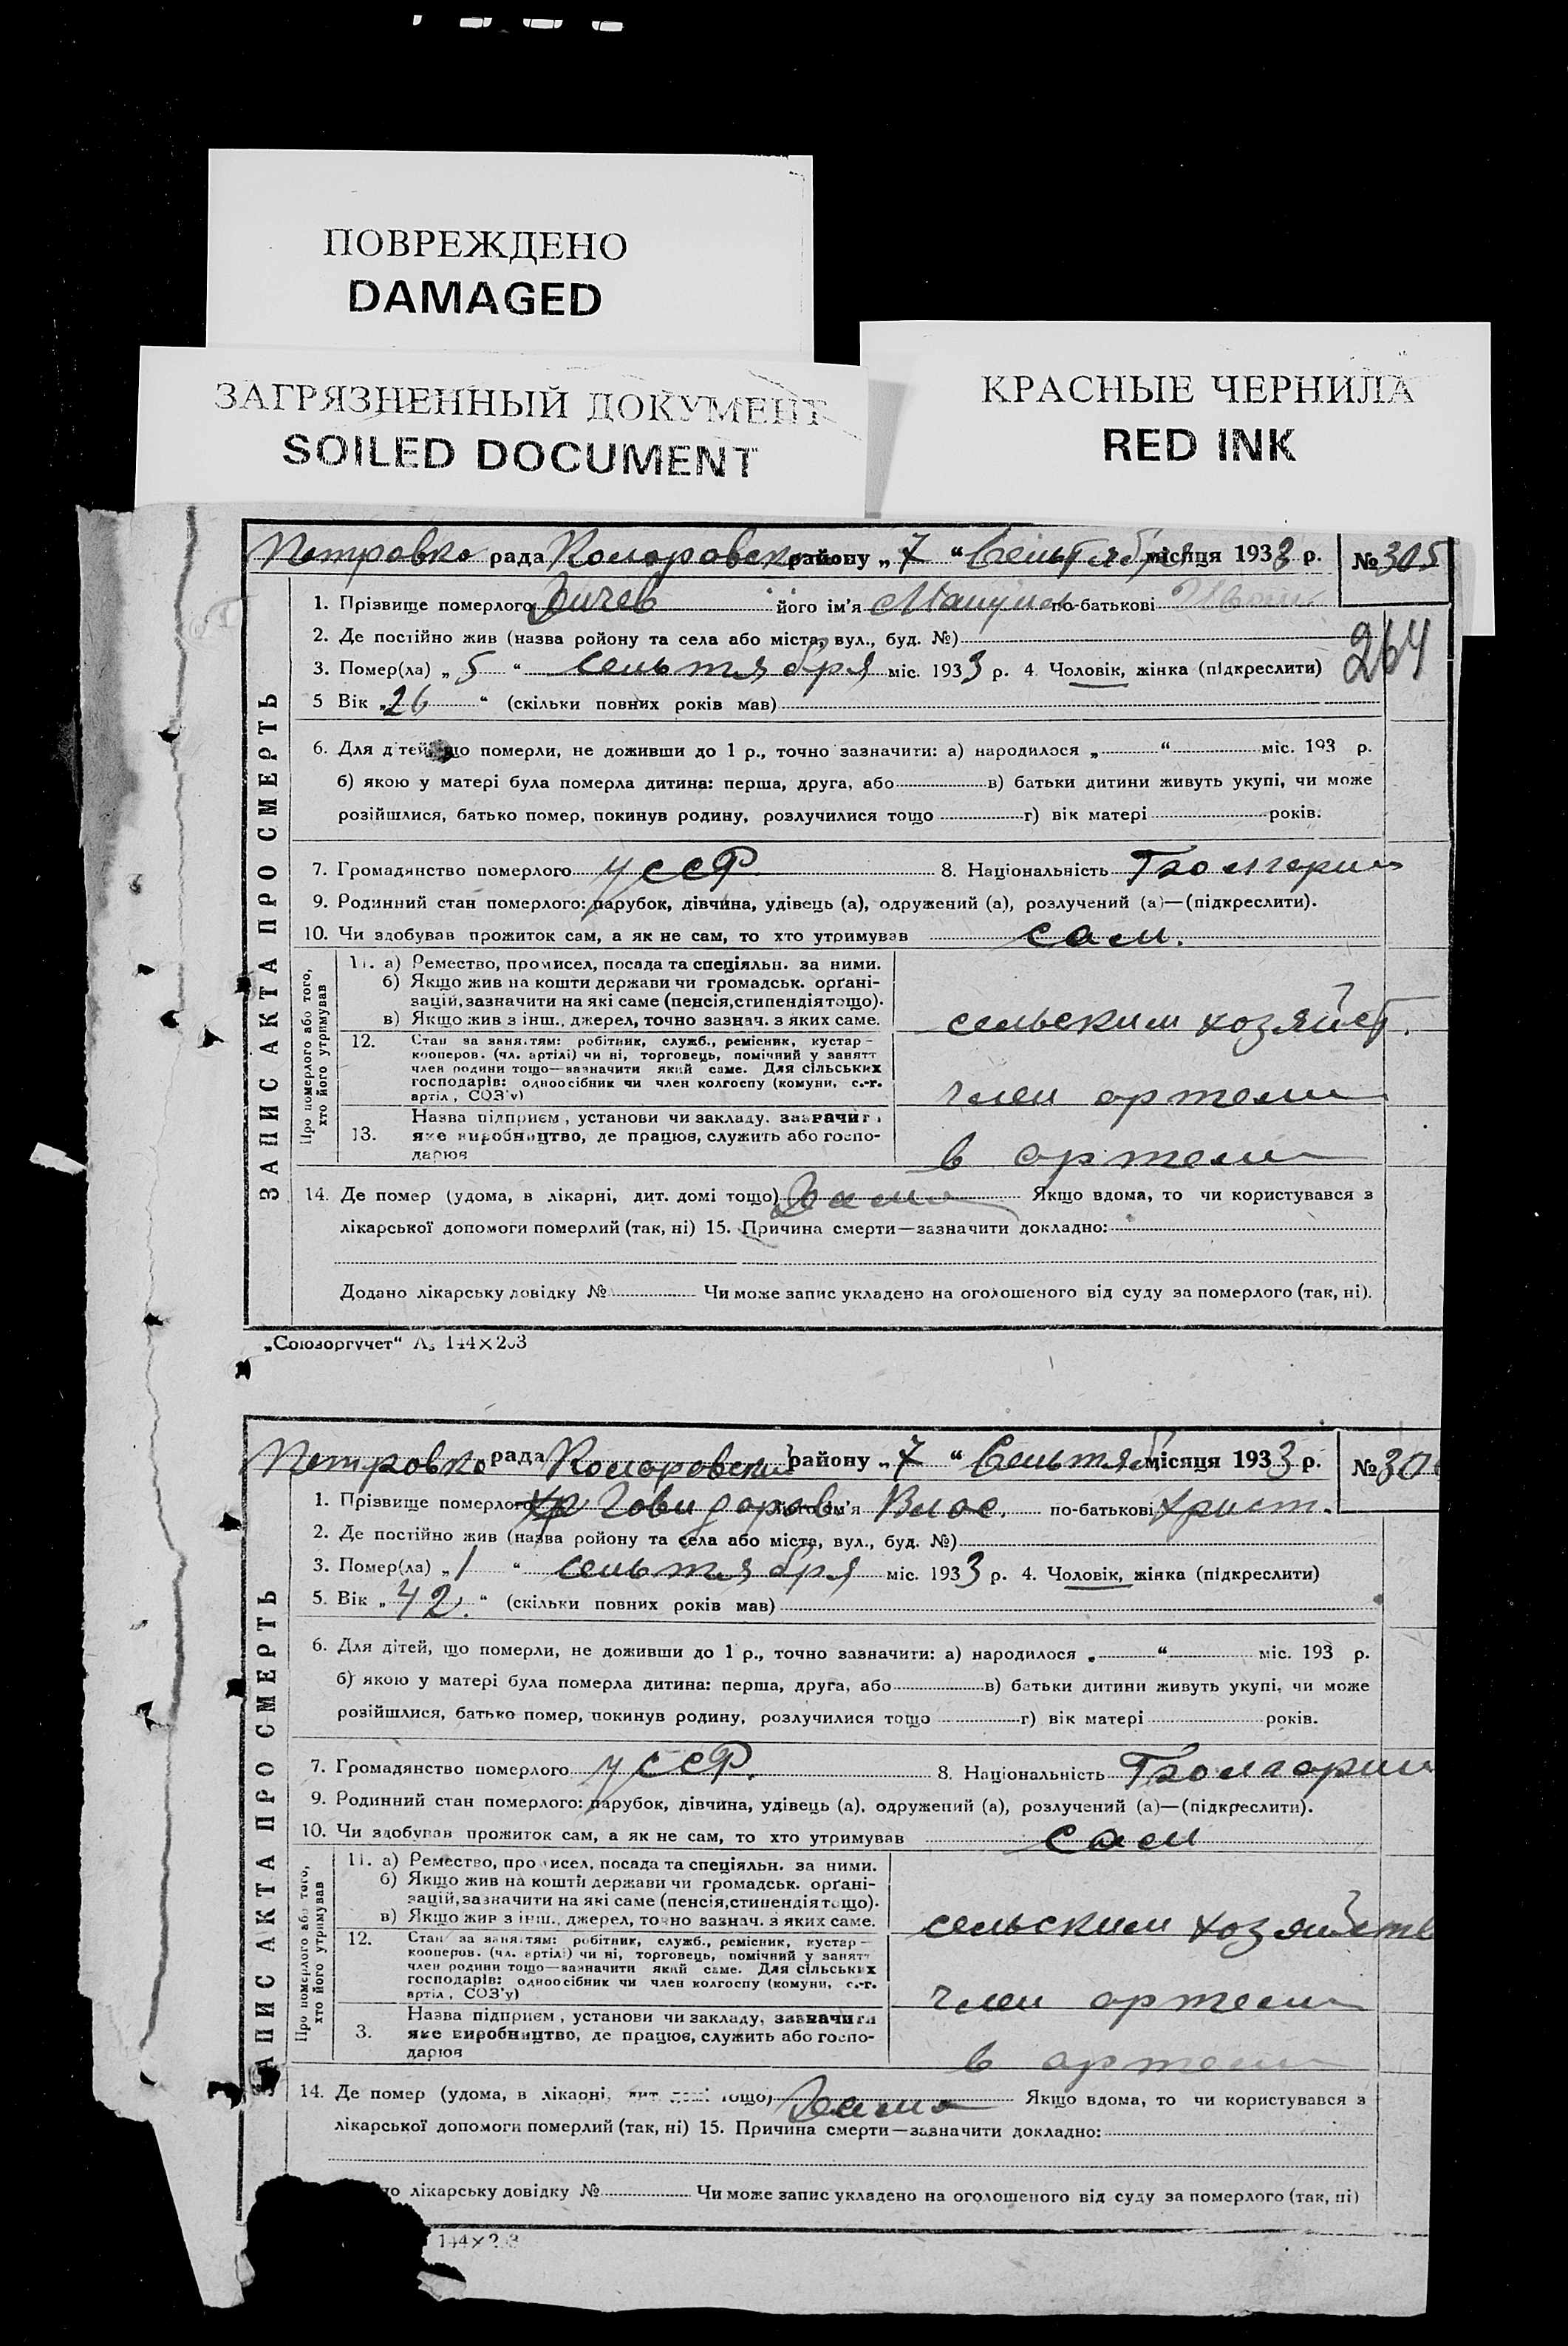 ПОВРЕЖДЕНО
DAMAGED
ЗАГРЯЗНЕННЫЙ ДОКУМЕНТ
SOILED DOCUMENT
КРАСНЫЕ ЧЕРНИЛА
RED INK
ЗАПИС АКТА ПРО СМЕРТЬ
Петровка рада Коларовск району „ 7 “ Сентября місяця 1933 р. № 305
1. Прізвище померлого його ім'я Мануил по-батькові
264
2. Де постійно жив (назва ройону та села або міста, вул., буд. №)
3. Помер(ла) „ 5 “ сентября міс. 1933 р. 4 Чоловік, жінка (підкреслити)
5 Вік „ 26 “ (скільки повних років мав)
6. Для дітей, що померли, не доживши до 1 р., точно зазначити: а) народилося „ “ міс. 193 р.
б) якою у матері була померла дитина: перша, друга, або в) батьки дитини живуть укупі, чи може
розійшлися, батько помер, покинув родину, розлучилися тощо г) вік матері років.
7. Громадянство померлого УССР 8. Національність
9. Родинний стан померлого: парубок, дівчина, удівець (а), одружений (а), розлучений (а)—(підкреслити).
10. Чи здобував прожиток сам, а як не сам, то хто утримував сам.
Про померлого або того, хто його утримував
11. а) Ремество, промисел, посада та спеціяльн. за ними.
б) Якщо жив на кошти держави чи громадськ. орґані-
зацій, зазначити на які саме (пенсія, стипендія тощо).
в) Якщо жив з інш., джерел, точно зазнач. з яких саме.
сельским хозяйст.
12. Стан за занятям: робітник, служб., ремісник, кустар-
кооперов. (чл. артілі) чи ні, торговець, помічний у занятт
член родини тощо—зазначити який саме. Для сільських
господарів: одноосібник чи член колгоспу (комуни, с.-г.
артіл, СОЗ'у)
член артели
Назва підприєм, установи чи закладу, зазначити
13. яке виробництво, де працює, служить або госпо-
дарює
в артели
14. Де помер (удома, в лікарні, дит. домі тощо) дома Якщо вдома, то чи користувався з
лікарської допомоги померлий (так, ні) 15. Причина смерти—зазначити докладно:
Додано лікарську довідку № Чи може запис укладено на оголошеного від суду за померлого (так, ні).
„Союзоргучет“ А₅ 144×203
ЗАПИС АКТА ПРО СМЕРТЬ
Петровка рада Коларовский району „ 7 “ Сентяб місяця 1933 р. №
1. Прізвище померлого його ім'я Влас. по-батькові Христ.
2. Де постійно жив (назва ройону та села або міста, вул., буд. №)
3. Помер(ла) „ 1 “ сентября міс. 1933 р. 4. Чоловік, жінка (підкреслити)
5. Вік „ 42. “ (скільки повних років мав)
6. Для дітей, що померли, не доживши до 1 р., точно зазначити: а) народилося „ “ міс. 193 р.
б) якою у матері була померла дитина: перша, друга, або в) батьки дитини живуть укупі, чи може
розійшлися, батько помер, покинув родину, розлучилися тощо г) вік матері років.
7. Громадянство померлого УССР. 8. Національність
9. Родинний стан померлого: парубок, дівчина, удівець (а), одружений (а), розлучений (а)—(підкреслити).
10. Чи здобував прожиток сам, а як не сам, то хто утримував сам
Про померлого або того, хто його утримував
11. а) Ремество, промисел, посада та спеціяльн. за ними.
б) Якщо жив на кошти держави чи громадськ. орґані-
зацій, зазначити на які саме (пенсія, стипендія тощо).
в) Якщо жив з інш., джерел, точно зазнач. з яких саме.
сельским хозяйств
12. Стан за занятям: робітник, служб., ремісник, кустар-
кооперов. (чл. артілі) чи ні, торговець, помічний у занятт
член родини тощо—зазначити який саме. Для сільських
господарів: одноосібник чи член колгоспу (комуни, с.-г.
артіл, СОЗ'у)
член артели
Назва підприєм, установи чи закладу, зазначити
3. яке виробництво, де працює, служить або госпо-
дарює
в артели
14. Де помер (удома, в лікарні, дит. домі тощо) дома Якщо вдома, то чи користувався з
лікарської допомоги померлий (так, ні) 15. Причина смерти—зазначити докладно:
но лікарську довідку № Чи може запис укладено на оголошеного від суду за померлого (так, ні)
144×203